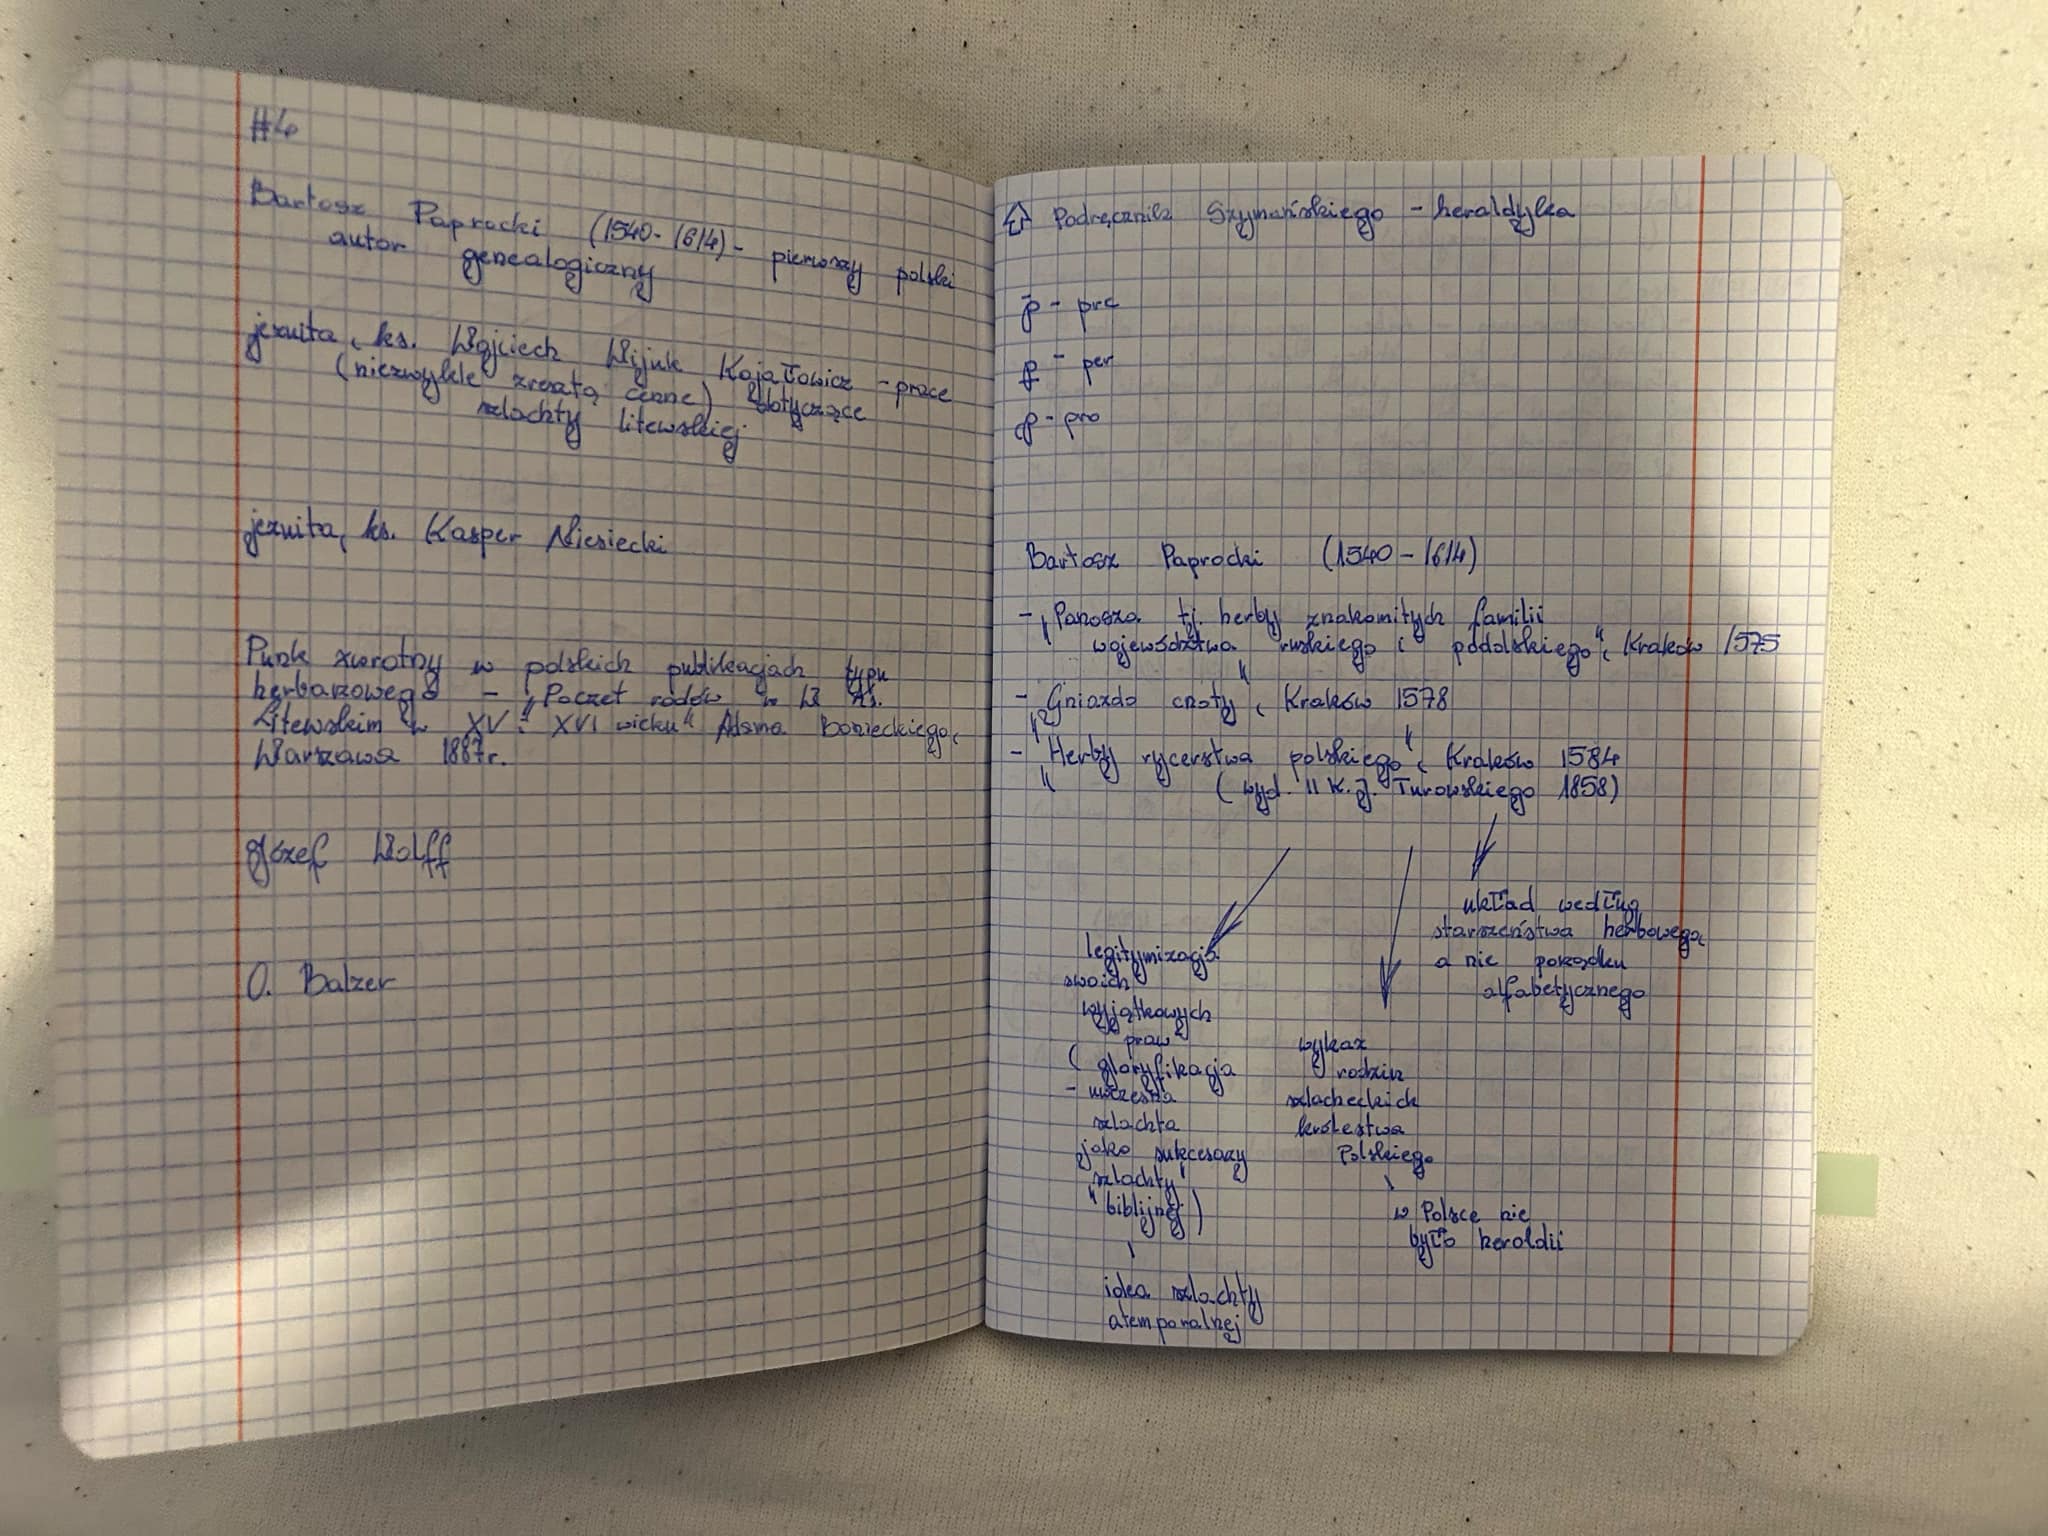 #4
Bartosz Paprocki (1540-1614) - pierwszy polski
autor genealogiczny
jezuita, ks. Wojciech Wijuk Kojałowicz - prace
(niezwykle zresztą cenne) dotyczące
szlachty litewskiej
jezuita, ks. Kasper Niesiecki
Punk zwrotny w polskich publikacjach typu
herbarzowego - „Poczet rodów w W Ks.
Litewskim w XV i XVI wieku" Adama Bonieckiego,
Warszawa 1887r.
Józef Wolff
O. Balzer
Podręcznik Szymańskiego - heraldyka
p̄ - pre
p - per
p - pro
Bartosz Paprocki (1540-1614)
- „Panosza tj. herby znakomitych familii
województwa ruskiego i podolskiego", Kraków 1575
- „Gniazdo cnoty", Kraków 1578
- „Herby rycerstwa polskiego", Kraków 1584
(wyd. II K.J. Turowskiego 1858)
legitymizacja
swoich
wyjątkowych
praw
(gloryfikacja
- uwczesna
szlachta
jako sukcesorzy
szlachty
"biblijnej")
idea szlachty
atemporalnej
wykaz
rodzin
szlacheckich
królestwa
Polskiego
w Polsce nie
było heroldii
układ według
starszeństwa herbowego,
a nie porządku
alfabetycznego